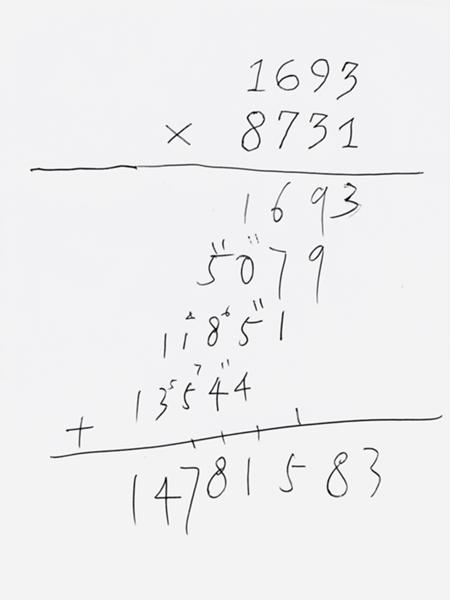 1693
× 8731
1693
5079
11851
+ 13544
14781583